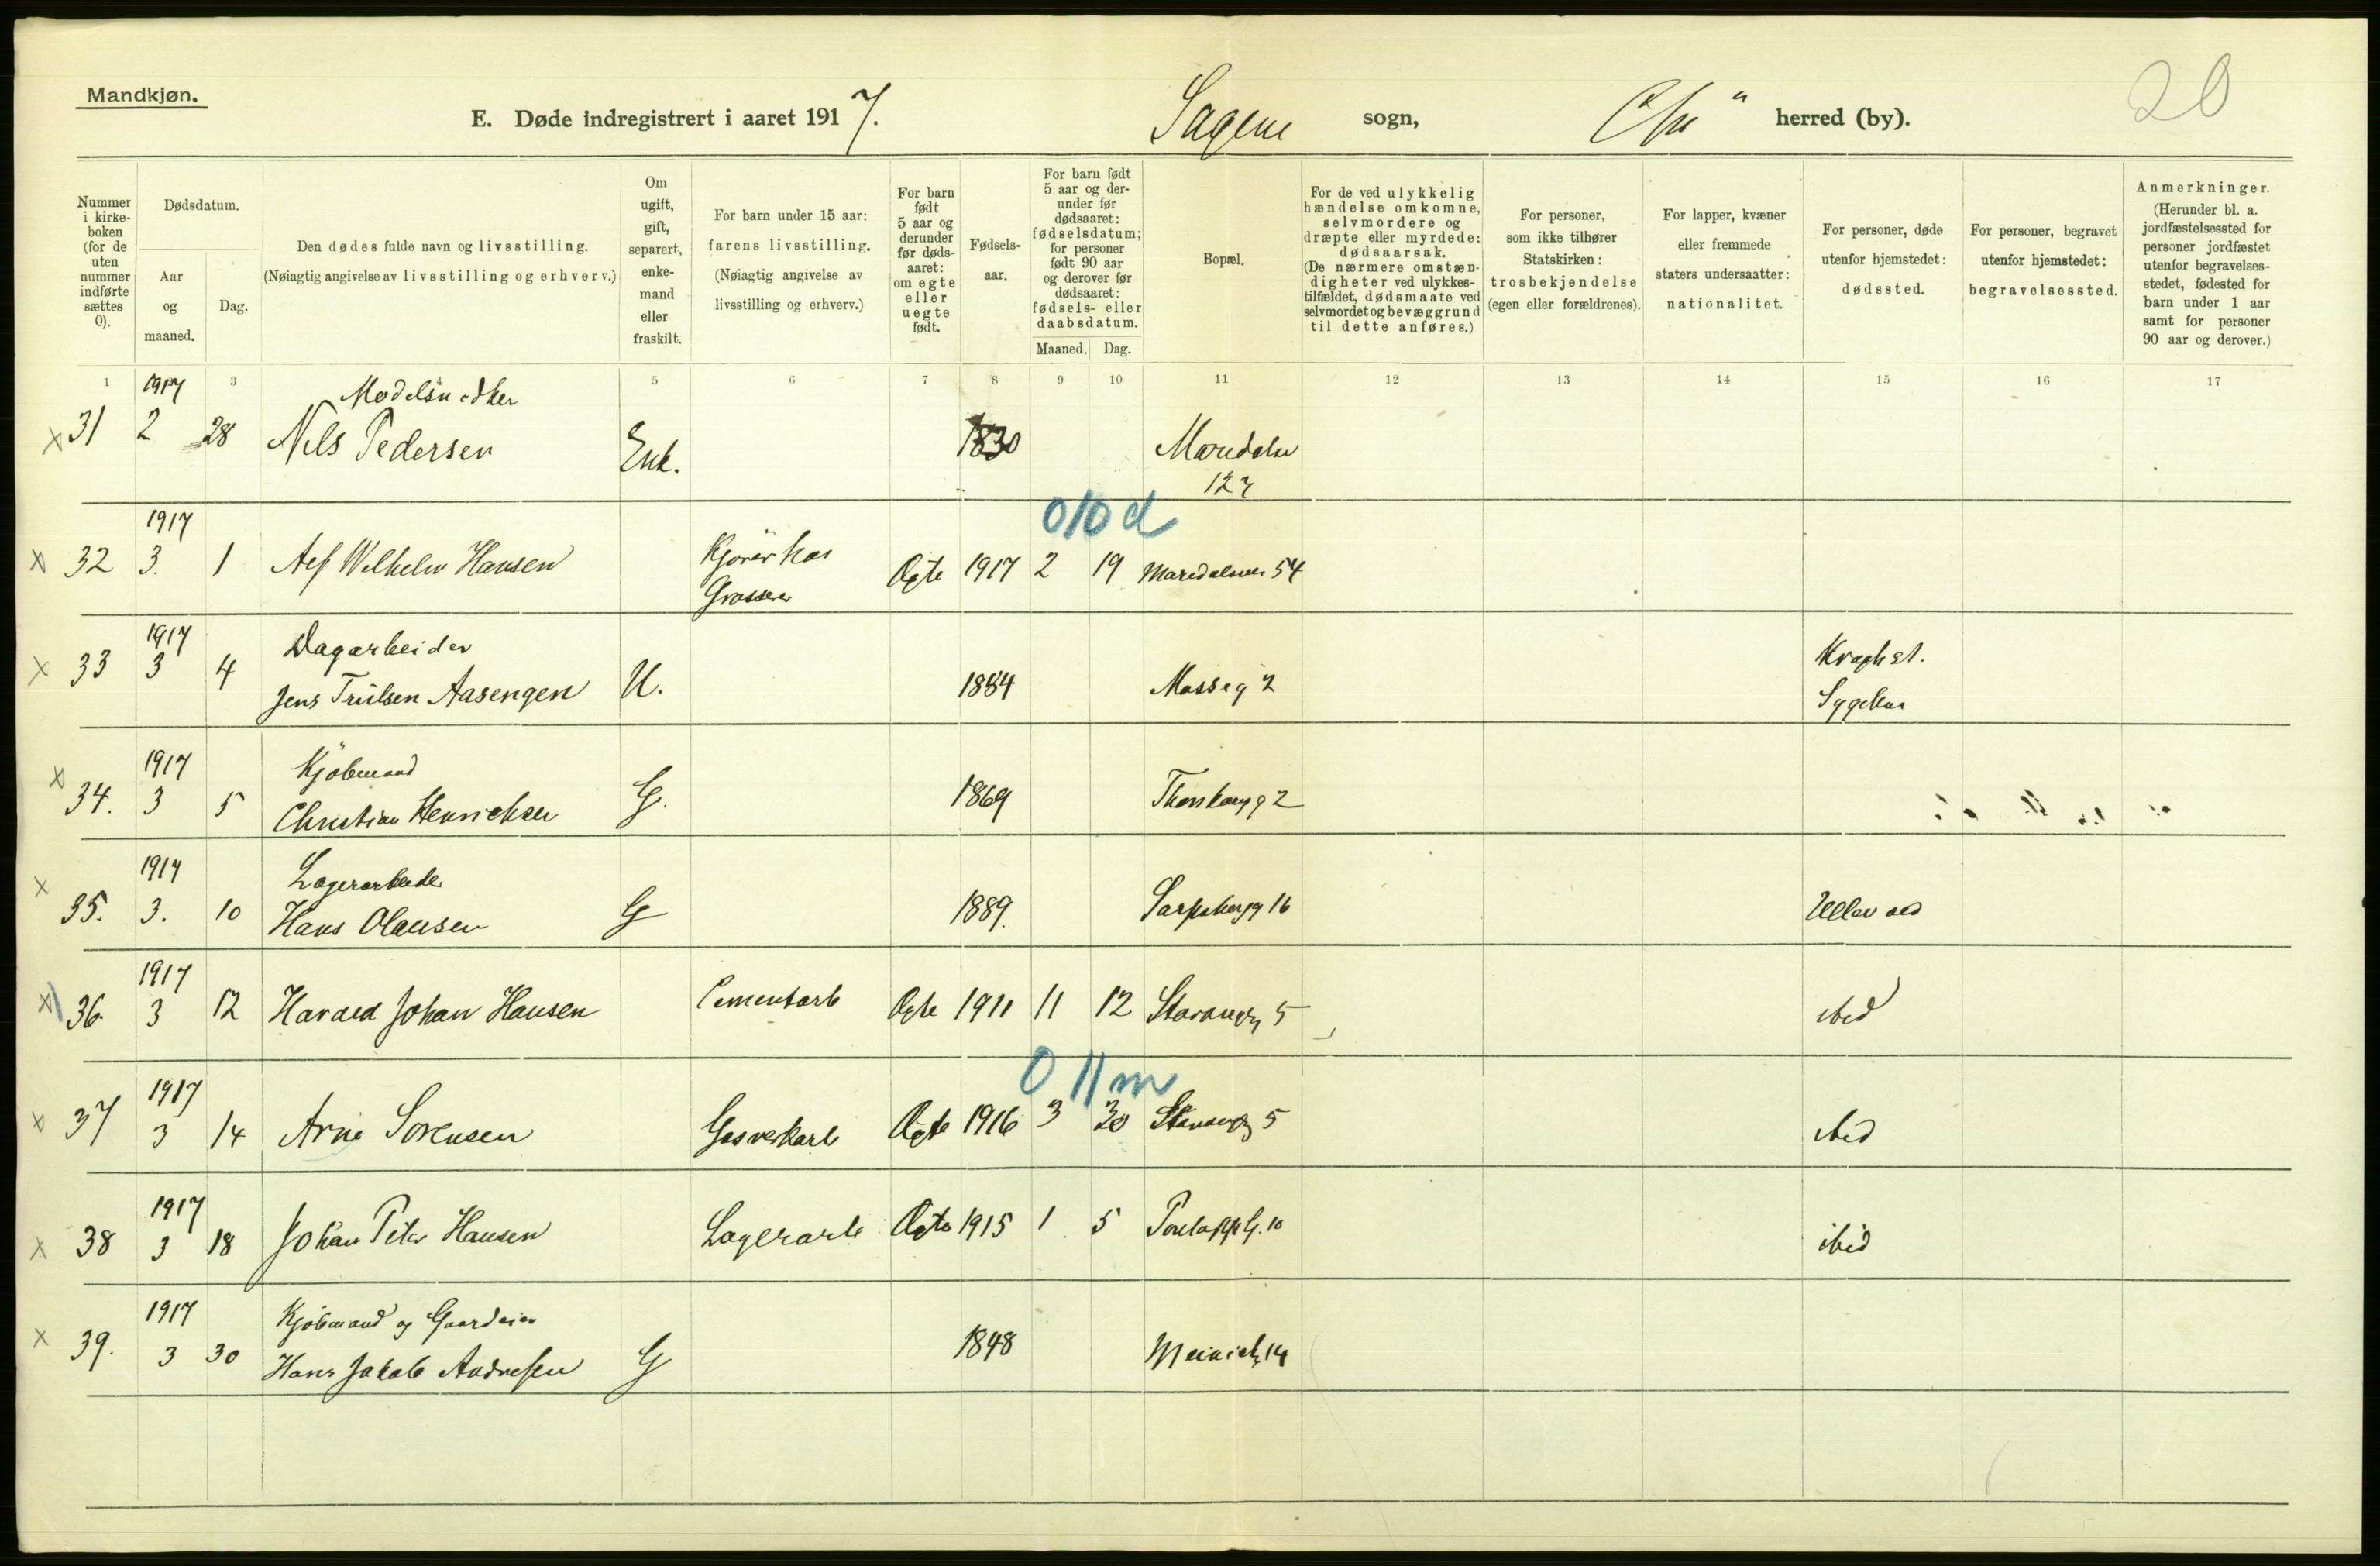 Mandkjøn.
E. Døde indregistrert i aaret 1917. Sagene sogn, Chr herred (by).
20
Nummer i kirke- boken (for de uten nummer indførte sættes 0).
Dødsdatum.
Aar og maaned.
Dag.
Den dødes fulde navn og livsstilling.
(Nøiagtig angivelse av livsstilling og erhverv.)
Om ugift, gift, separert, enke- mand eller fraskilt.
For barn under 15 aar:
farens livsstilling.
(Nøiagtig angivelse av
livsstilling og erhverv.)
For barn født 5 aar og derunder før døds- aaret: om egte eller uegte født.
Fødsels- aar.
For barn født 5 aar og der- under før dødsaaret: fødselsdatum; for personer født 90 aar og derover før dødsaaret: fødsels- eller daabsdatum.
Maaned. Dag.
Bopæl.
For de ved ulykkelig hændelse omkomne, selvmordere og dræpte eller myrdede: dødsaarsak.
(De nærmere omstæn- digheter ved ulykkes- tilfældet, dødsmaate ved selvmordet og bevæggrund til dette anføres.)
For personer, som ikke tilhører Statskirken: trosbekjendelse (egen eller forældrenes).
For lapper, kvæner eller fremmede staters undersaatter: nationalitet.
For personer, døde utenfor hjemstedet: dødssted.
For personer, begravet utenfor hjemstedet: begravelsessted.
Anmerkninger.
(Herunder bl. a. jordfæstelsessted for personer jordfæstet utenfor begravelses- stedet, fødested for barn under 1 aar samt for personer 90 aar og derover.)
1 3 5 6 7 8 9 10 11 12 13 14 15 16 17
1917 Modelsnedker
x 31 2 28 Nils Pedersen Enk. 1830 Maridalsv
127
010d
1917
x 32 3. 1 Alf Wilhelm Hansen Kjörer hos Ogte 1917 2 19 Maridalsveien 54
Grosserer
1917 Dagarbeider Kroghst.
x 33 3 4 Jens Trulsen Aasengen U. 1884 Mossеg 2 Sygehus
1917 Kjöbmand
x 34. 3 5 Christian Henrichsen G. 1869 g 2
1917 Lagerarbeider
x 35. 3. 10 Hans Olausen G 1889. Sarpsborgg 16 Ullevaal
1917
x 36. 3 12 Harald Johan Hansen Cementarb Ogte 1911 11 12 Stavangg 5 ibid
0 11 m
1917
x 37 3 14 Arne Sorensen Gasverkarb Ogte 1916 3 30 Stavangg 5 ibid
1917
x 38 3 18 Johan Peter Hansen Lagerarb Ogte 1915 1 5 G. 10 ibid
1917 Kjöbmand og Gaardeier
x 39. 3 30 Hans Jakob Andresen G 1848 14